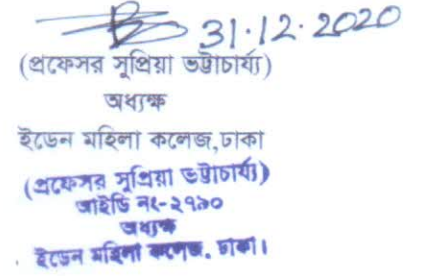 31.12.2020
(প্রফেসর সুপ্রিয়া ভট্টাচার্য্য)
অধ্যক্ষ
ইডেন মহিলা কলেজ,ঢাকা
(প্রফেসর সুপ্রিয়া ভট্টাচার্য্য)
আইডি নং-২৭৯০
অধ্যক্ষ
ইডেন মহিলা কলেজ, ঢাকা।